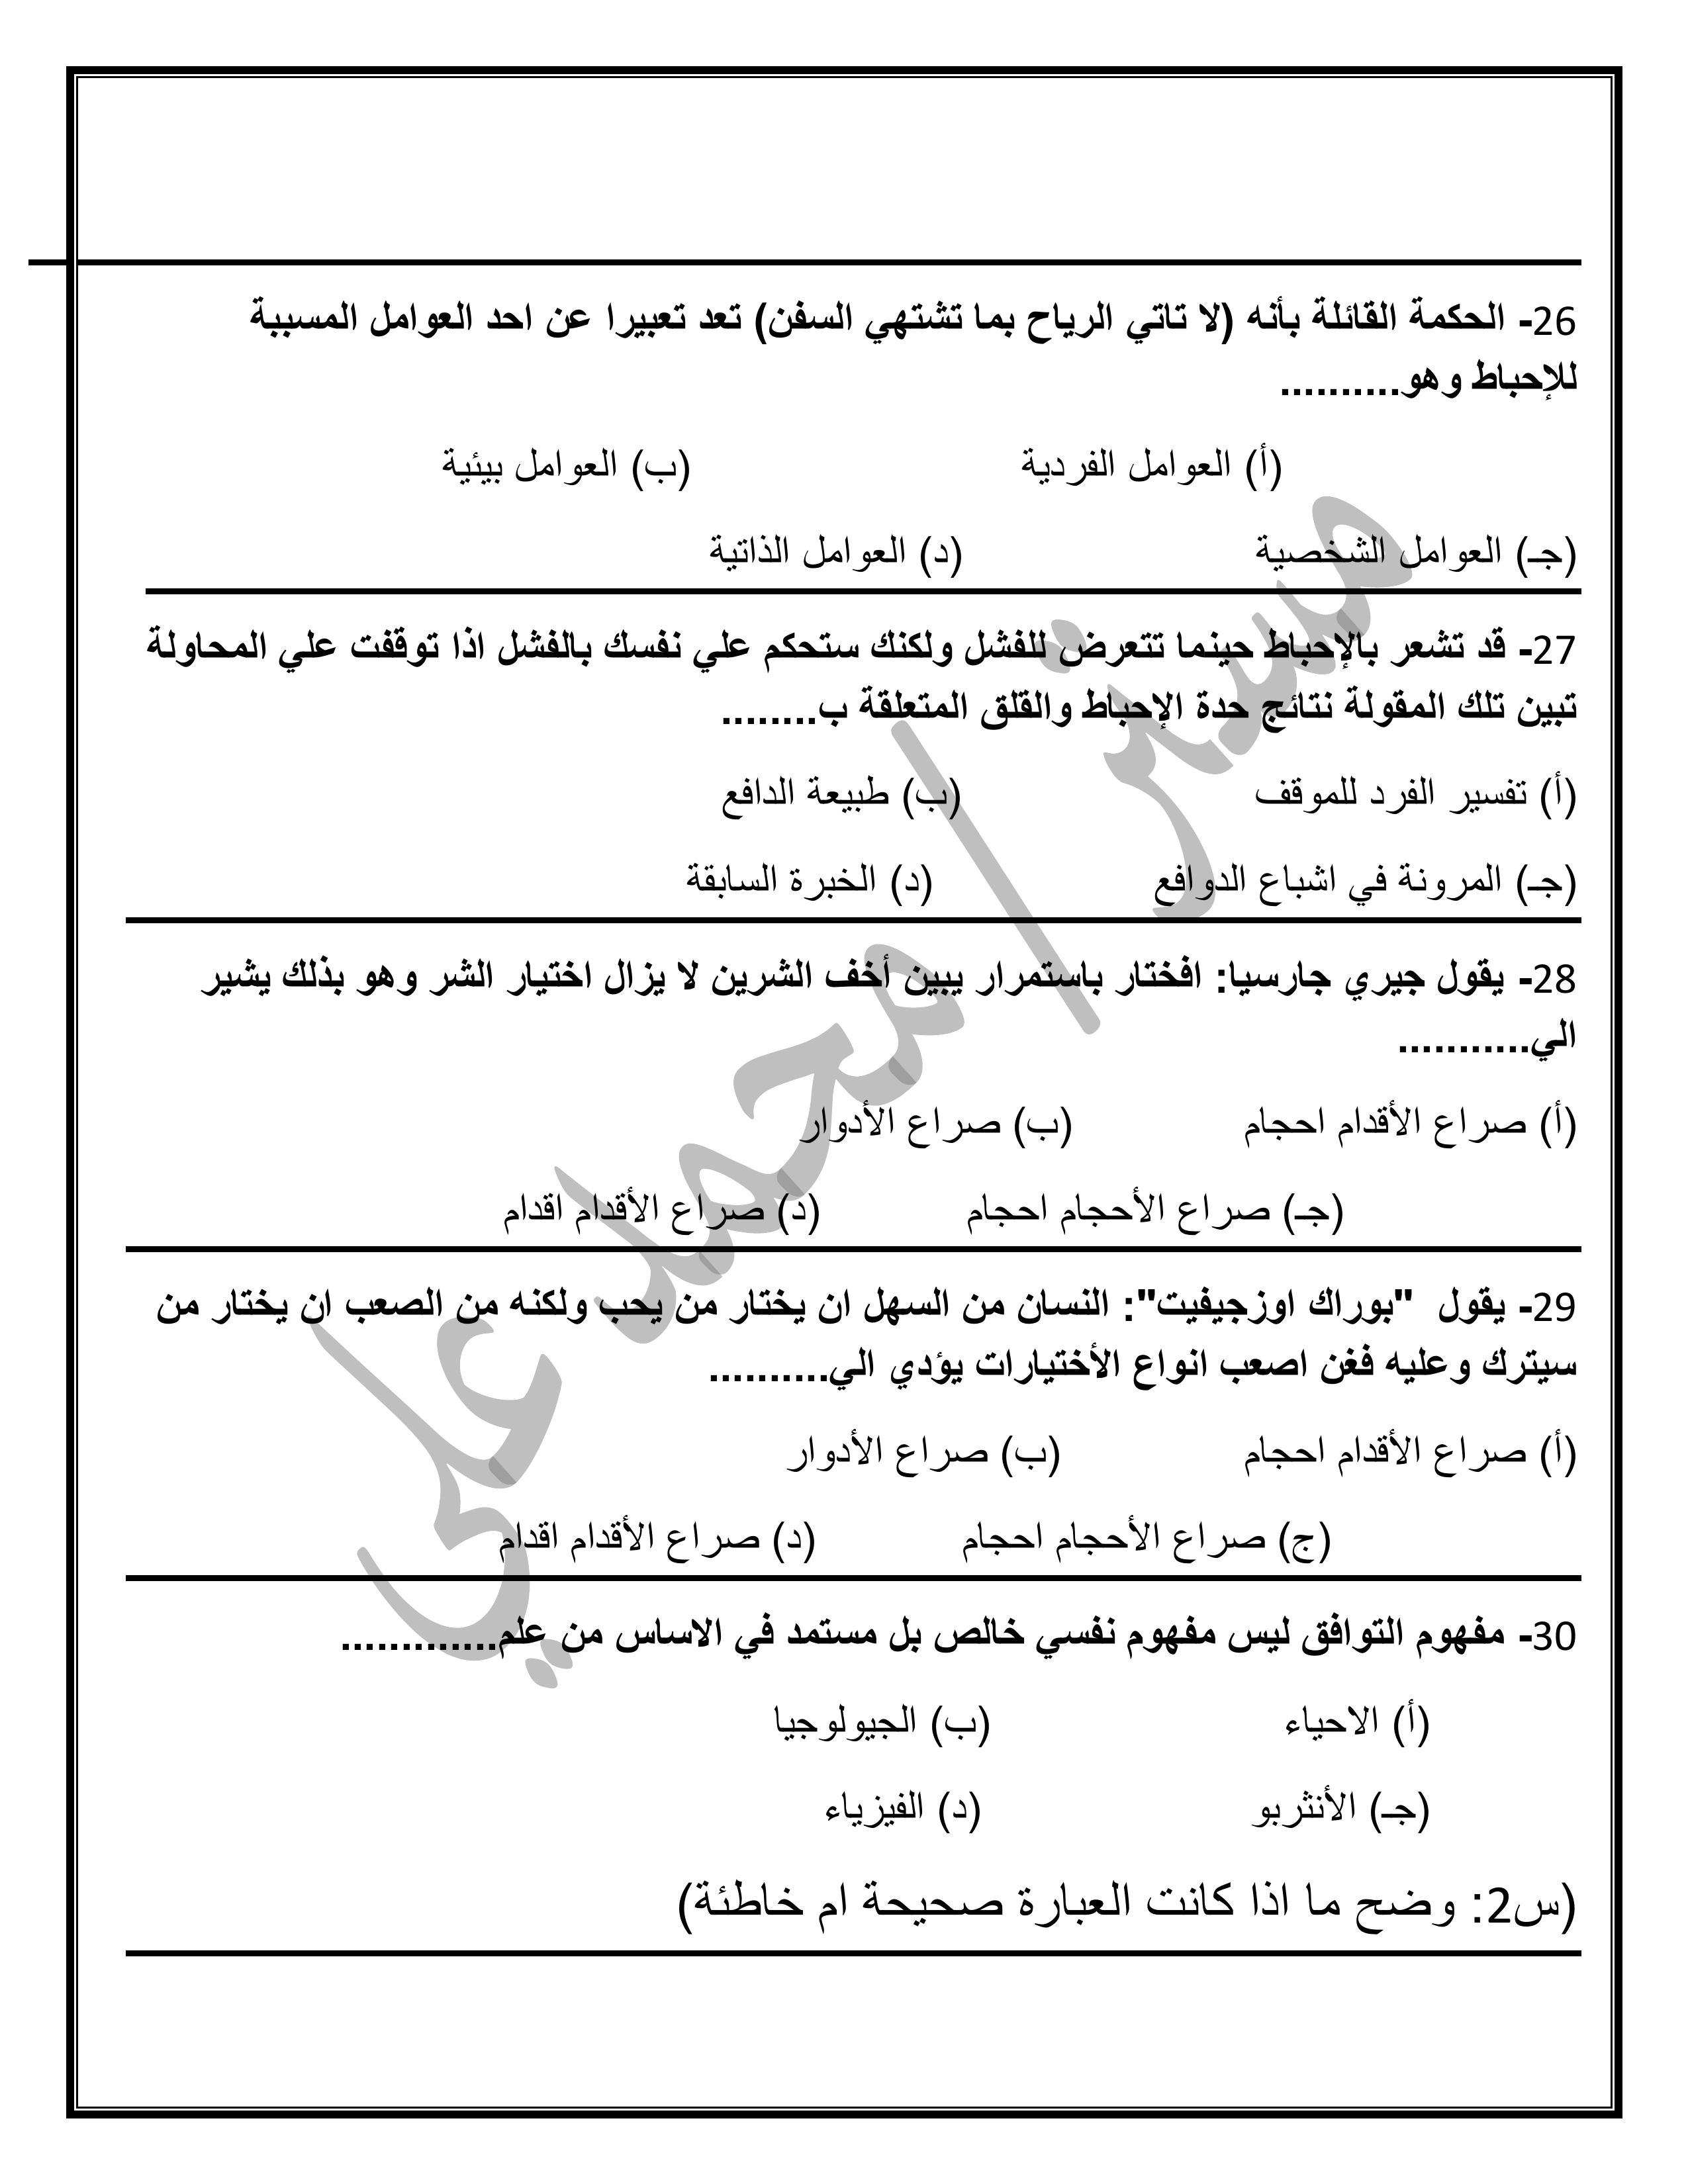 26- الحكمة القائلة بأنه (لا تاتي الرياح بما تشتهي السفن) تعد تعبيرا عن احد العوامل المسببة
للإحباط وهو..........
(أ) العوامل الفردية (ب) العوامل بيئية
(جـ) العوامل الشخصية (د) العوامل الذاتية
27- قد تشعر بالإحباط حينما تتعرض للفشل ولكنك ستحكم علي نفسك بالفشل اذا توقفت علي المحاولة
تبين تلك المقولة نتائج حدة الإحباط والقلق المتعلقة ب........
(أ) تفسير الفرد للموقف (ب) طبيعة الدافع
(جـ) المرونة في اشباع الدوافع (د) الخبرة السابقة
28- يقول جيري جارسيا: افختار باستمرار يبين أخف الشرين لا يزال اختيار الشر وهو بذلك يشير
الي...........
(أ) صراع الأقدام احجام (ب) صراع الأدوار
(جـ) صراع الأحجام احجام (د) صراع الأقدام اقدام
29- يقول "بوراك اوزجيفيت": النسان من السهل ان يختار من يحب ولكنه من الصعب ان يختار من
سيترك وعليه فغن اصعب انواع الأختيارات يؤدي الي..........
(أ) صراع الأقدام احجام (ب) صراع الأدوار
(ج) صراع الأحجام احجام (د) صراع الأقدام اقدام
30- مفهوم التوافق ليس مفهوم نفسي خالص بل مستمد في الاساس من علم.............
(أ) الاحياء (ب) الجيولوجيا
(جـ) الأنثربو (د) الفيزياء
(س2: وضح ما اذا كانت العبارة صحيحة ام خاطئة)
مستر/ محمد علي